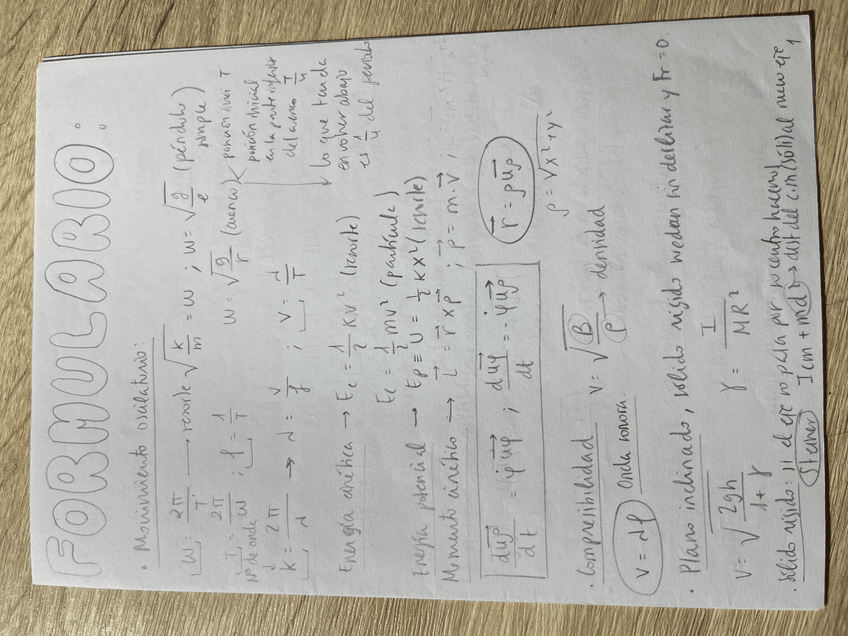 FORMULARIO:
• Movimiento oscilatorio:
ω = 2π/T → resorte √(k/m) = ω ; ω = √(g/e) (péndulo simple)
T = 2π/ω ; f = 1/T
ω = √(g/r) (cuenco) < posición inicial
posición inicial en la parte
del cuenco T/4
Nº de onda
k = 2π/λ → λ = v/f ; v = λ/T
↓ lo que tarda en volver abajo es 1/4 del periodo
Energía cinética → Ec = 1/2 KV² (resorte)
Ec = 1/2 mv² (partícula)
Energía potencial → Ep = U = 1/2 KX² (resorte)
Momento cinético → L = r x p ; p = m·v ;
duρ/dt = φ̇ uφ ; duφ/dt = -φ̇ uρ
r = ρuρ
ρ = √(x² + y²)
• Compresibilidad v = √(B/ρ) → densidad
v = λf Onda sonora
• Plano inclinado, sólido rígido ruedan sin deslizar y Fr = 0.
V = √(2gh/(1+γ)) γ = I/MR²
• Sólido rígido: si el eje no pasa por su centro hacemos
Steiner Icm + md² → dist del c.m (sólido) al nuevo eje